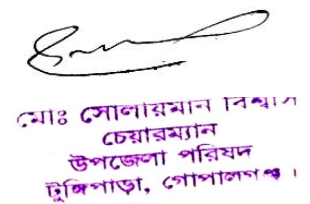 মোঃ সোলায়মান বিশ্বাস
চেয়ারম্যান
উপজেলা পরিষদ
টুঙ্গিপাড়া, গোপালগঞ্জ ।